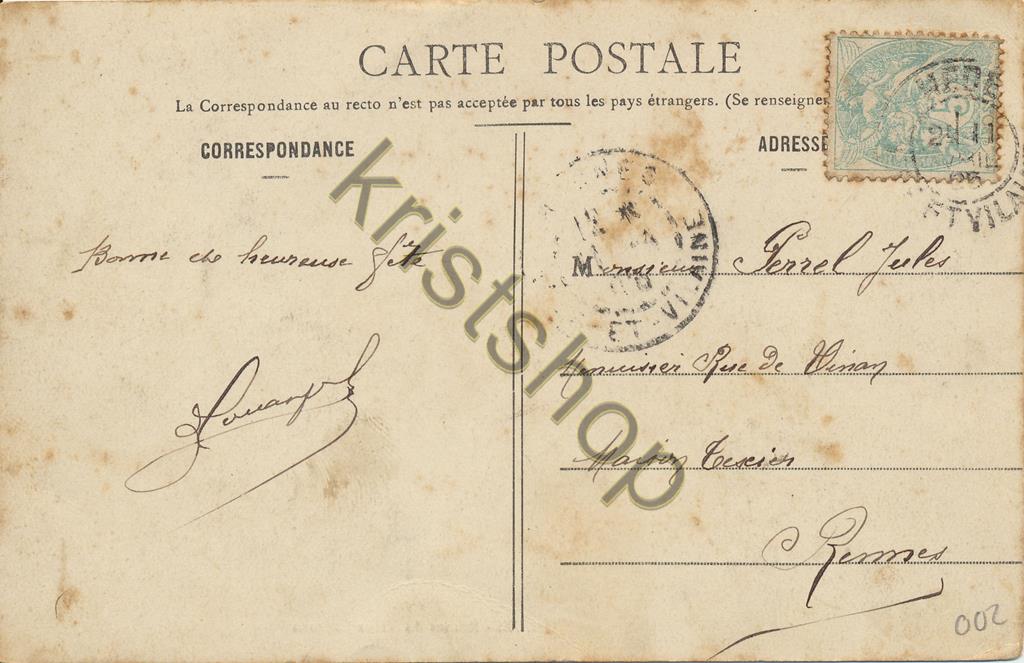 CARTE POSTALE
La Correspondance au recto n'est pas acceptée par tous les pays étrangers. (Se renseigner
CORRESPONDANCE
ADRESSE
Bonne et heureuse fête
Monsieur Perrel Jules
Menuisier Rue de Dinan
Maison Texier
Rennes
ET-VILAINE
ET VILAI
kristshop
002